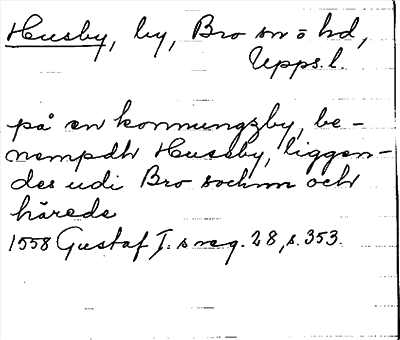 Husby, by, Bro sn o hd,
Upps. l.
på en konnungzby, be-
nempdh Hussby, liggen-
des udi Bro sochnn och
härede
1558 Gustaf I:s reg. 28, s. 353.